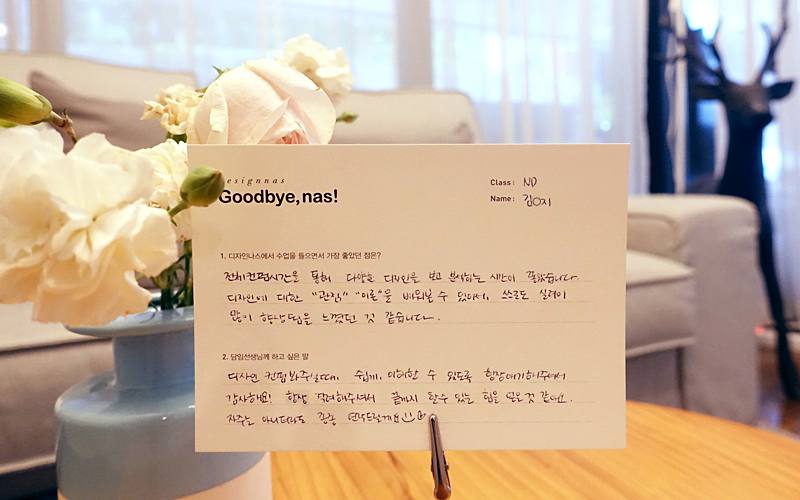 esignnas
Goodbye, nas!
Class : ND
Name : 김○지
1. 디자인나스에서 수업을 들으면서 가장 좋았던 점은?
전체컨펌시간을 통해 다양한 디자인을 보고 분석하는 시간이 좋았습니다.
디자인에 대한 "관점" "이론"을 배워볼 수 있어서, 스스로도 실력이
많이 향상됨을 느꼈던 것 같습니다.
2. 담임선생님께 하고 싶은 말
디자인 컨펌봐주실때, 쉽게, 이해할 수 있도록 항상얘기해주셔서
감사해요! 항상 격려해주셔서 끝까지 할수 있는 힘을 얻은것 같아요.
자주는 아니더라도 종종 연락드릴게요